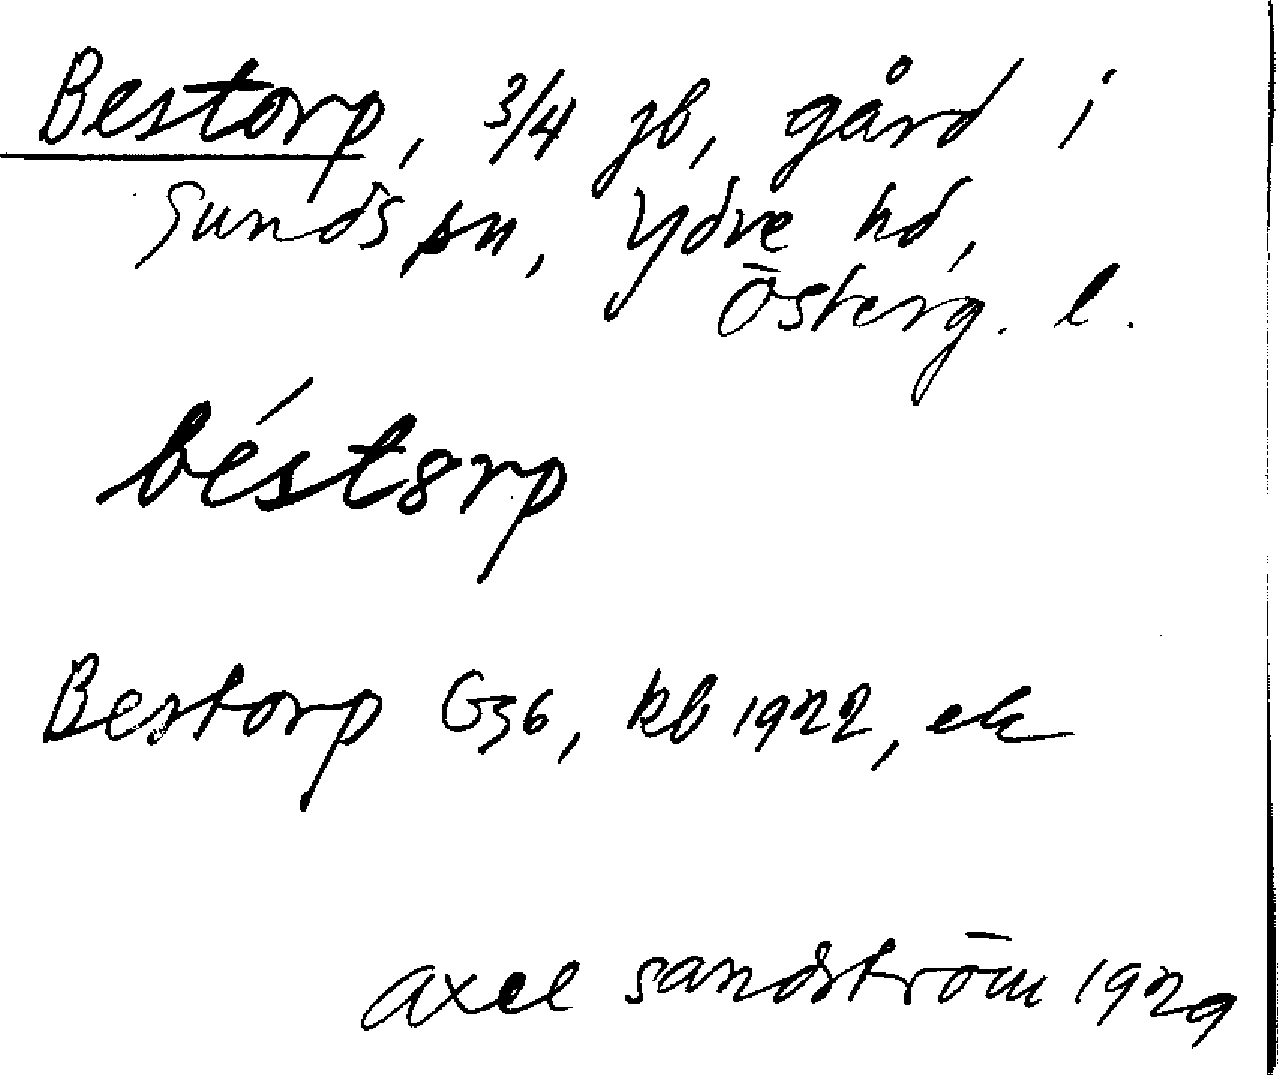 Bestorp, 3/4 jb, gård i
Sunds sn, Ydre hd,
Österg. l.
béstȣrp
Bestorp G36, kb 1922, ek
Axel Sandström 1929